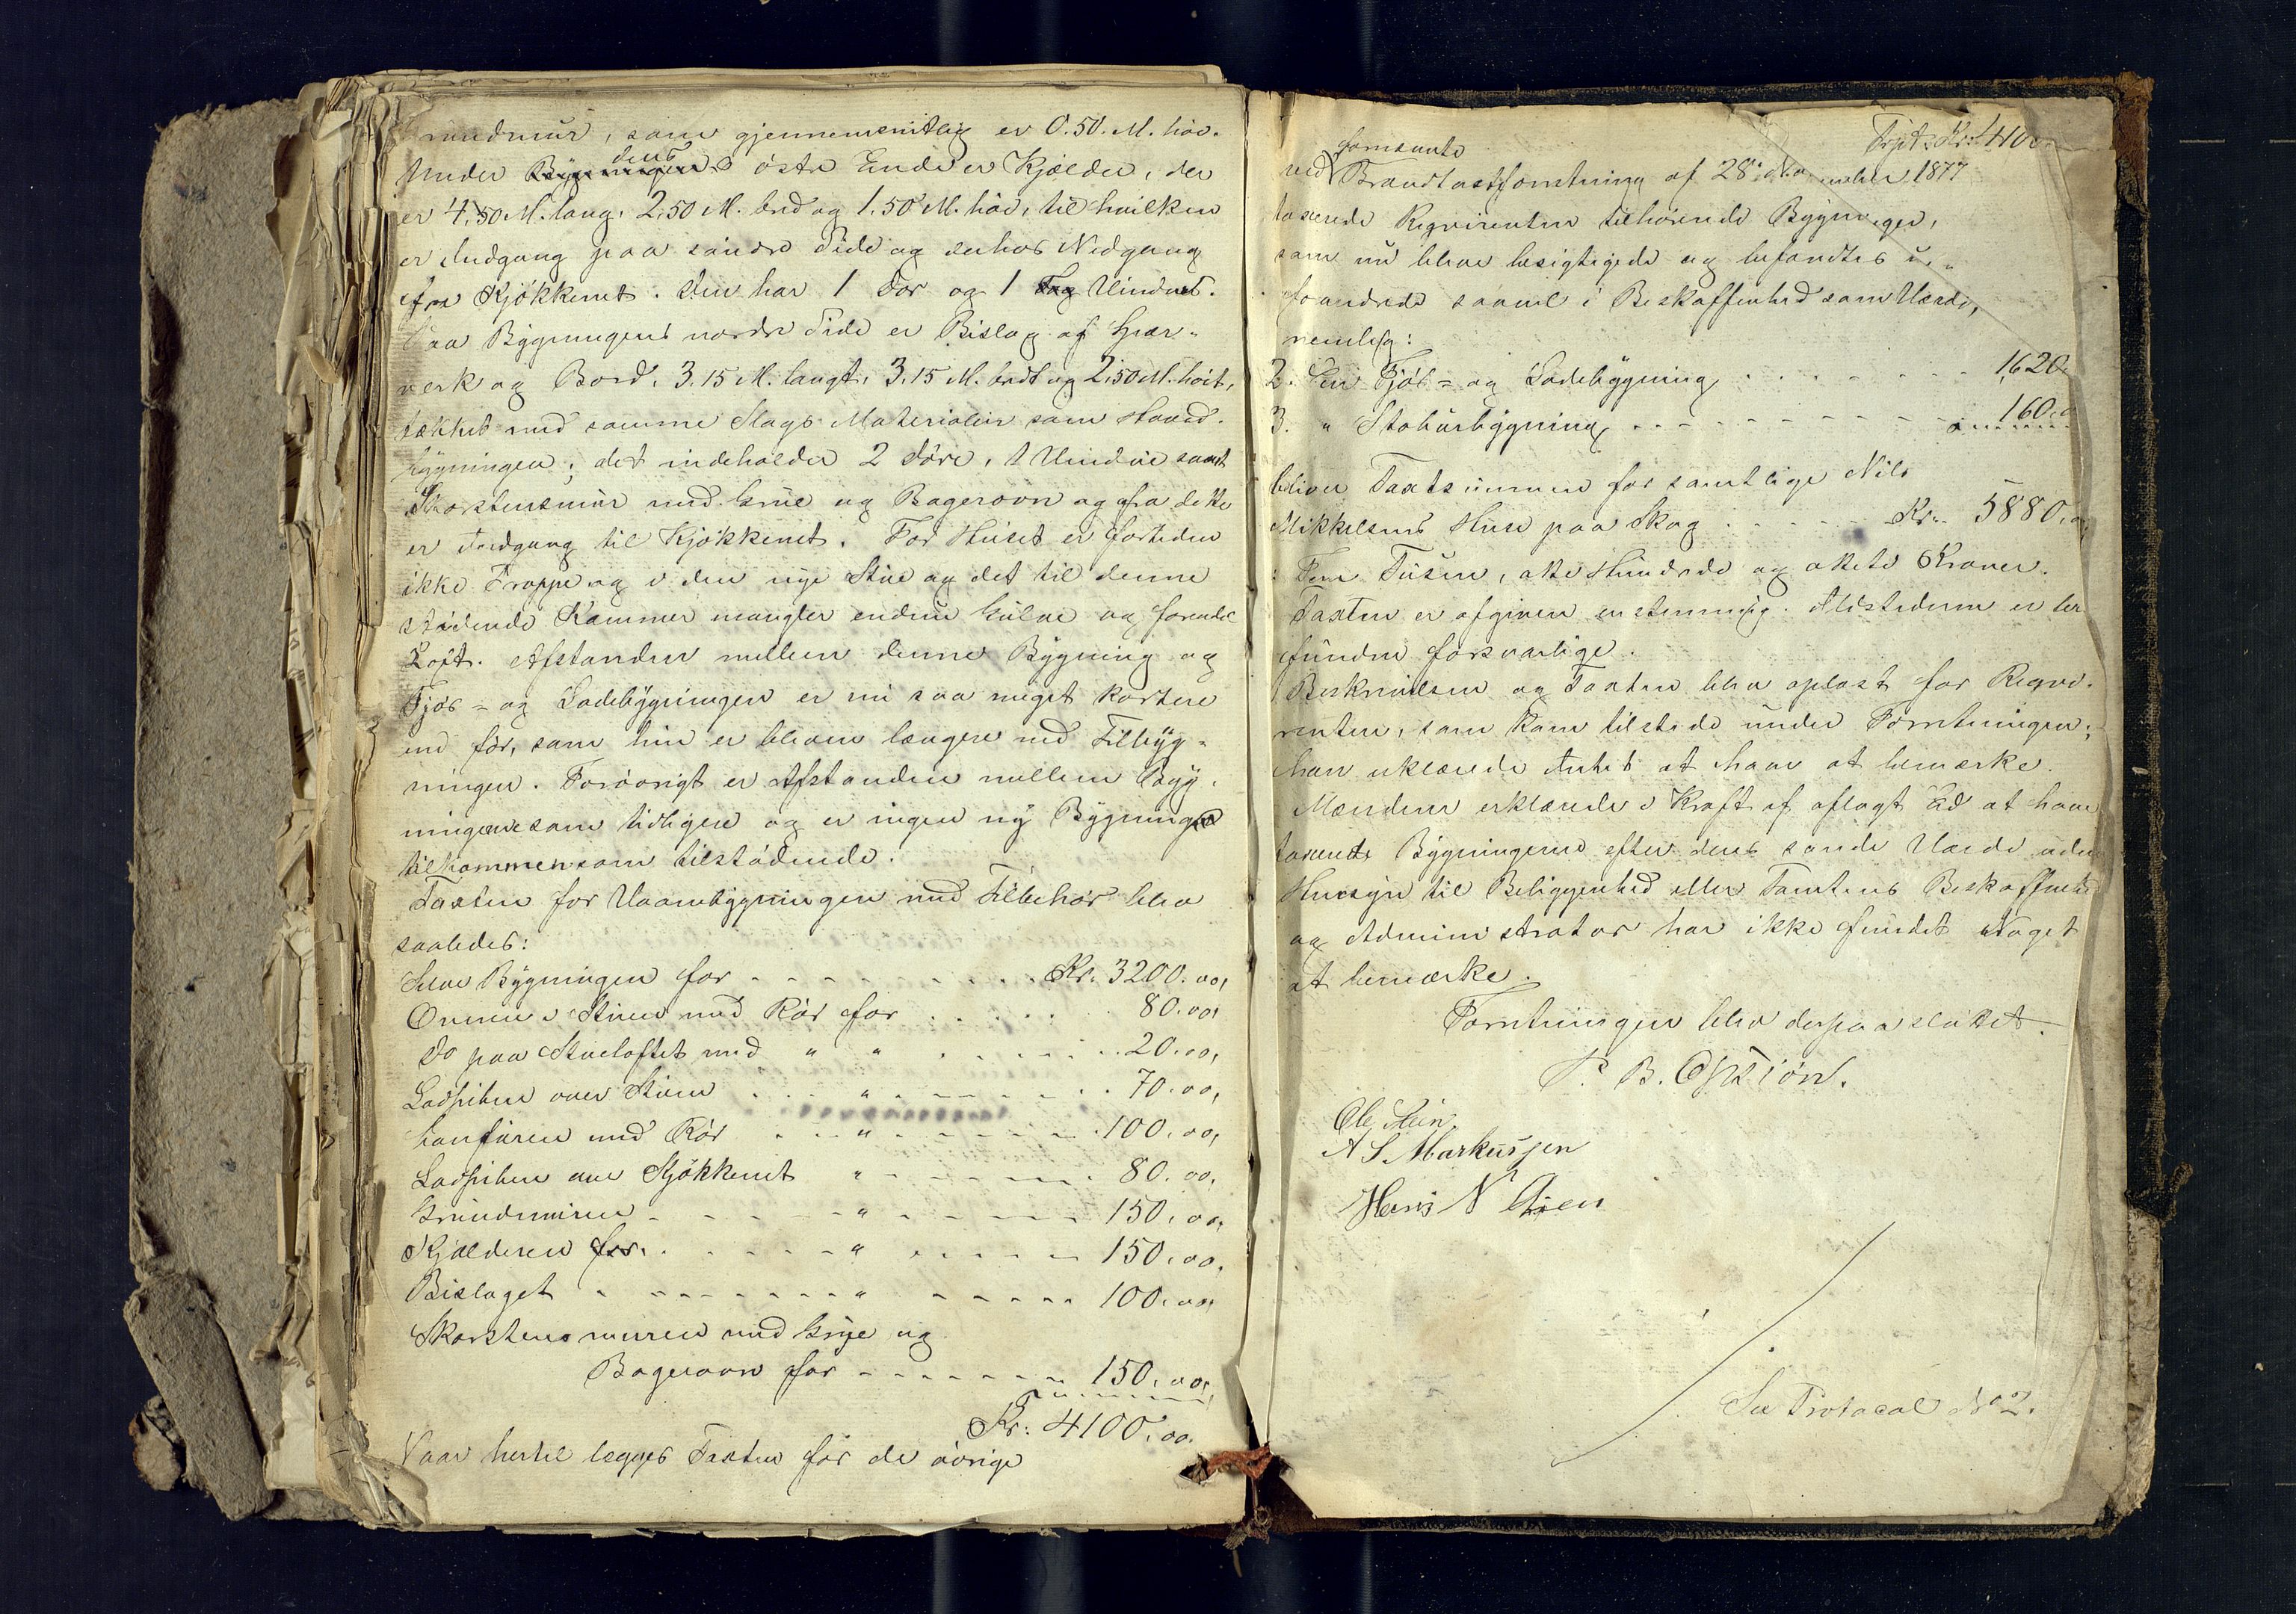 rundmur, som gjennemsnitlig er 0.50. M. höi.
Under Bygningens dens östre Ende er Kjælder, der
er 4,50 M. lang, 2,50 M. bred og 1.50 M. höi, til hvilken
er Indgang paa söndre Side og derhos Nedgang
fra Kjökkenet. Den har 1 Dör og 1 Fag Vindue.
Paa Bygningens nordre Side er Bislag af Grær-
verk og Bord, 3.15 M. langt, 3.15 M. bredt og 2,50 M. höit,
tækket med samme Slags Materialier som Hoved-
bygningen; det indeholder 2 Döre, 1 Vindue samt
Skorstensmur med Grue og Bagerovn og fra dette
er Indgang til Kjökkenet. For Huset er fortiden
ikke Trappe og i den nye Stue og det til denne
stödende Kammer mangler endnu Gulve og forendel
Loft. Afstanden mellem denne Bygning og
Fjös- og Ladebygningen er nu saa meget kortere
end för, som hin er bleven længere ved Tilbyg-
ningen. Forövrigt er Afstanden mellem Byg-
ningerne som tidligere og er ingen ny Bygning
tilkommen som tilstödende.
Taxten for Vaaningsbygningen med Tilbehör blev
saaledes:
Selve Bygningen for - - - - - - - - Kr. 3200.00,
Ovnen i Stuen med Rör for . . . . . 80.00,
Do paa Stueloftet med " " . . . . . . 20.00,
Lodpiben over Stuen . . . " - - - - - . . 70.00,
Komfuren med Rör . - - " - - - - - - 100.00,
Lodpiben over Kjökkenet " - - - - - - - 80.00,
Grundmuren - - - - - - " - - - - - - 150.00,
Kjælderen for. . . - - - - " . . - - - - 150.00.
Bislaget - - - - - - - - " - - - - - 100.00,
Skorstensmuren med Grue og
Bagerovn for - - - - - - - 150.00,
Kr: 4100.00.
Naar hertil lægges Taxten för de övrige
Trpt. Kr: 4100
ved fornævnte Brandtaxtforretning af 28de November 1877
taxerede Reqvirenten tilhörende Bygninger,
som nu bleve besigtigede og befandtes u-
forandrede saavel i Beskaffenhed som Værdi,
nemlig:
2. En Fjös- og Ladebygning . . . . - - - 1620.
3. " Stabursbygning . - - - - - - - " 160.0
bliver Taxtsummen for samtlige Nils
Mikkelsens Huse paa Skog . - - - - Kr. 5880.00,
: Fem Tusen, otte Hundrede og otteti Kroner.
Taxten er afgiven enstemmig. Ildstederne er be-
fundne forsvarlige.
Beskrivelsen og Taxten blev oplæst for Reqvi-
renten, som kom tilstede under Forretningen;
han erklærede Intet at have at bemærke.
Mændene erklærede i Kraft af aflagt Ed at have
taxeret Bygningerne efter dens sande Værdi uden
Hensyn til Beliggenhed eller Tomtens Beskaffenhed
og Administrator har ikke fundet Noget
at bemærke.
Forretningen blev derpaa sluttet.
P. B. Opsiön.
Ole Stein
A S. Markussen
Hans N
See Protocol No 2.